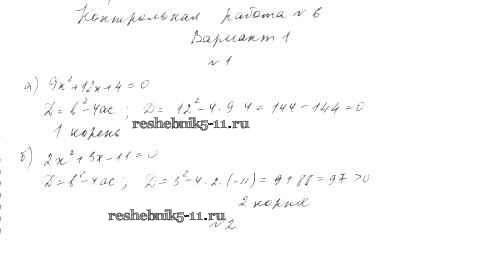 Контрольная работа № 6
Вариант 1
№ 1
а) 9x²+12x+4=0
D=b²-4ac; D= 12²-4·9·4=144-144=0
1 корень
reshebnik5-11.ru
б) 2x²+3x-11=0
D=b²-4ac; D=3²-4·2·(-11)=9+88=97>0
2 корня
reshebnik5-11.ru
№ 2